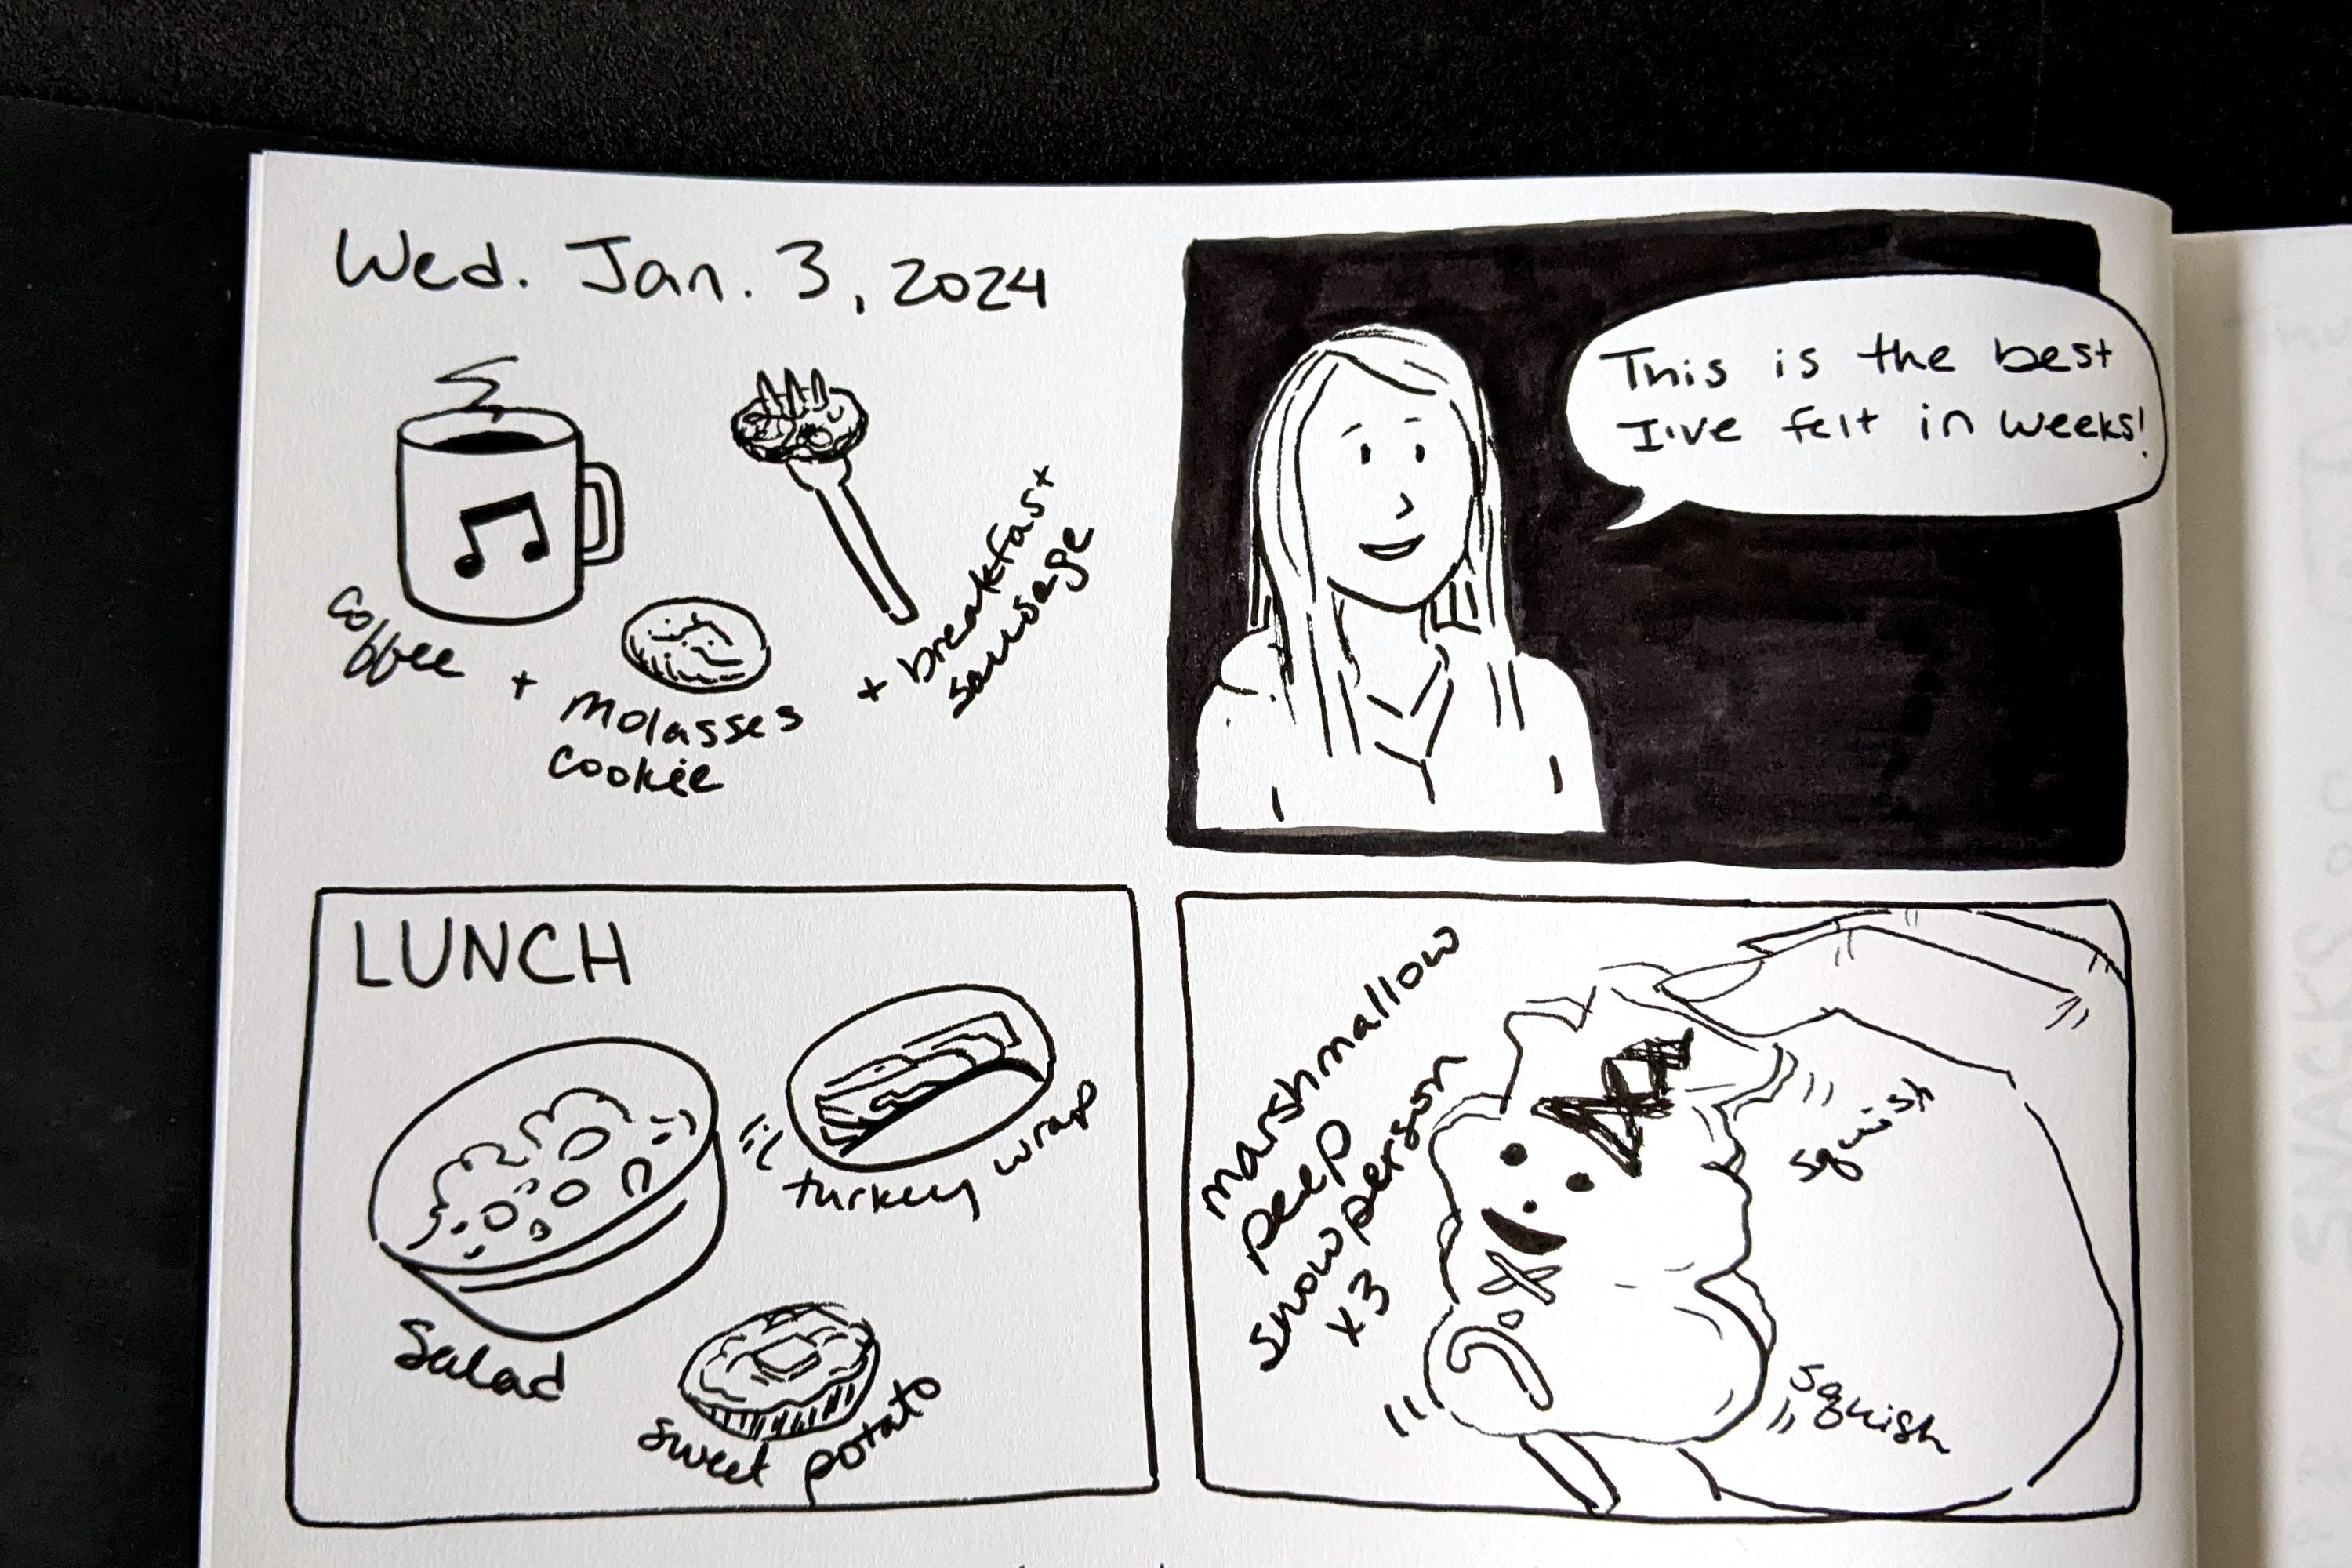 Wed. Jan. 3, 2024
coffee
+
molasses
cookie
+ breakfast
sausage
This is the best
I've felt in weeks!
LUNCH
turkey wrap
salad
sweet potato
marshmallow
peep
snowperson
x3
squish
squish